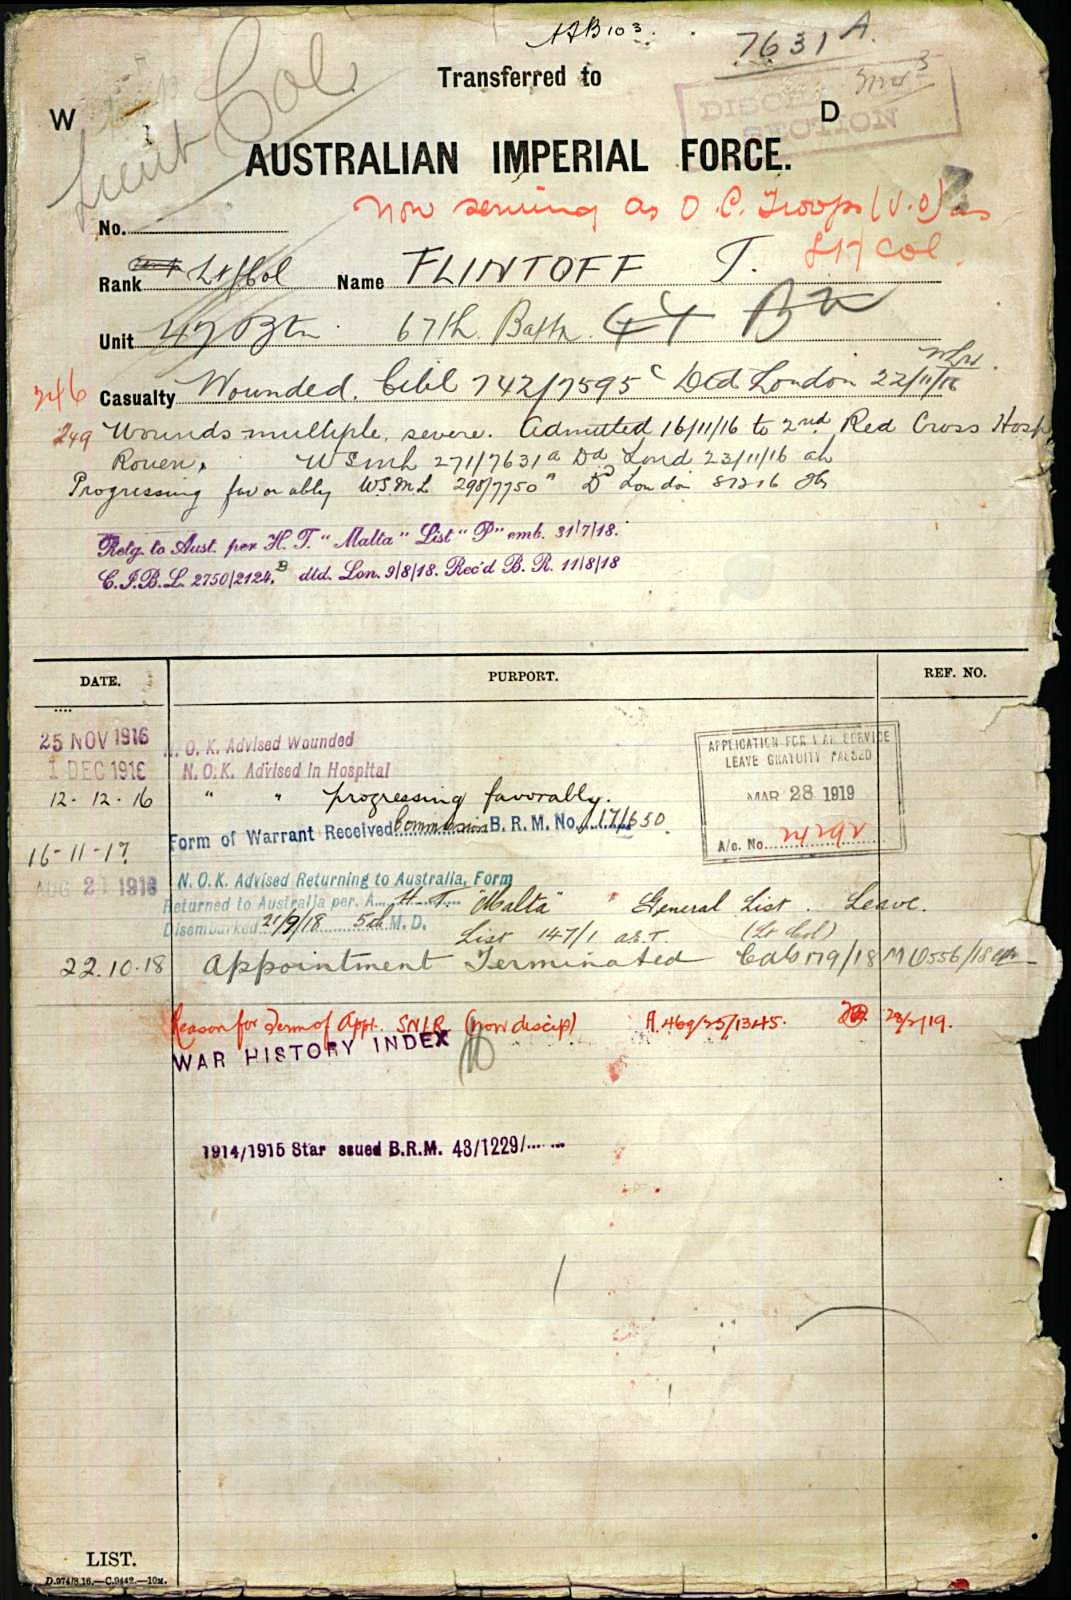 AFB 103.
7631 A.
Transferred to
Lieut Col
W D
DISCH
SECTION
AUSTRALIAN IMPERIAL FORCE.
Now serving as O.C. Troops (V.O) as
Lt Col.
No.
Rank Lt/Col Name FLINTOFF T.
Unit 47 Btn. 67th Battn. 44 Bn
Casualty Wounded. Cibl 742/7595 c Dtd London 22/11/16
246
249 Wounds multiple, severe. Admitted 16/11/16 to 2nd Red Cross Hosp
Rouen. WSML 271/7631 a Dd Lond 23/11/16
Progressing favorably WSML 298/7750 D London 81216
Retg. to Aust. per H. T. "Malta" List "P" emb. 31/7/18.
C.I.B.L. 2750/2124. B dtd. Lon. 9/8/18. Rec'd B. R. 11/8/18
DATE. PURPORT. REF. NO.
25 NOV 1916 N. O. K. Advised Wounded
1 DEC 1916 N.O.K. Advised in Hospital
12-12-16 " " progressing favorably.
APPLICATION FOR WAR SERVICE
LEAVE GRATUITY PASSED
MAR 28 1919
A/c. No. 24292
16-11-17 Form of Warrant Received Commission B. R. M. No. 17/650
AUG 21 1918 N. O. K. Advised Returning to Australia, Form
Returned to Australia per. A. H. T. "Malta" General List. Leave.
Disembarked 21/9/18 5th M. D. List 147/1 (Lt Col)
22.10.18 Appointment Terminated 179/18 M O556/18
Reason for Term of Appt. SNLR (non discip) A. 469/25/1345. 28/2/19.
WAR HISTORY INDEX
1914/1915 Star issued B.R.M. 43/1229/
LIST.
D.974/8.16.—C.9442.—10M.